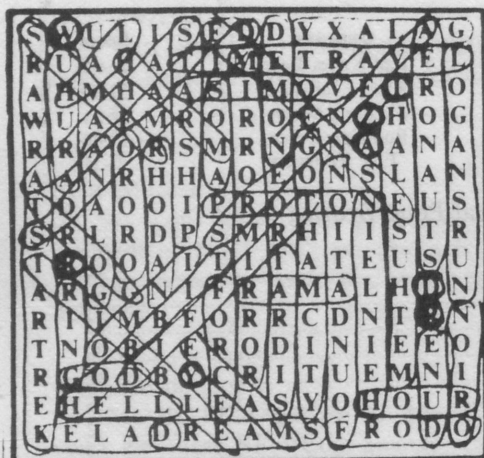 S W U L I S E D D Y X A L A G
R U A H A T I M E T R A V E L
A H M H A A S I M O V E C R O
W U A E M R O R O E N Z H O G
R R A O R S M R N G N A O N A
A A N R H H A O E O N S L A N
T D A O O I P R O T O N E U S
S R L R D P S M R H I I S T R
T E O O A I T I T A T E U S U
A R G G N I F R A M A L H I N
R I I M B F O R R C D N T E N
T N O B I E R O D I N I E E O
R G O D B Y C R I T U E M N I
E H E L L L E A S Y O H O U R
K E L A D R E A M S F R O D O